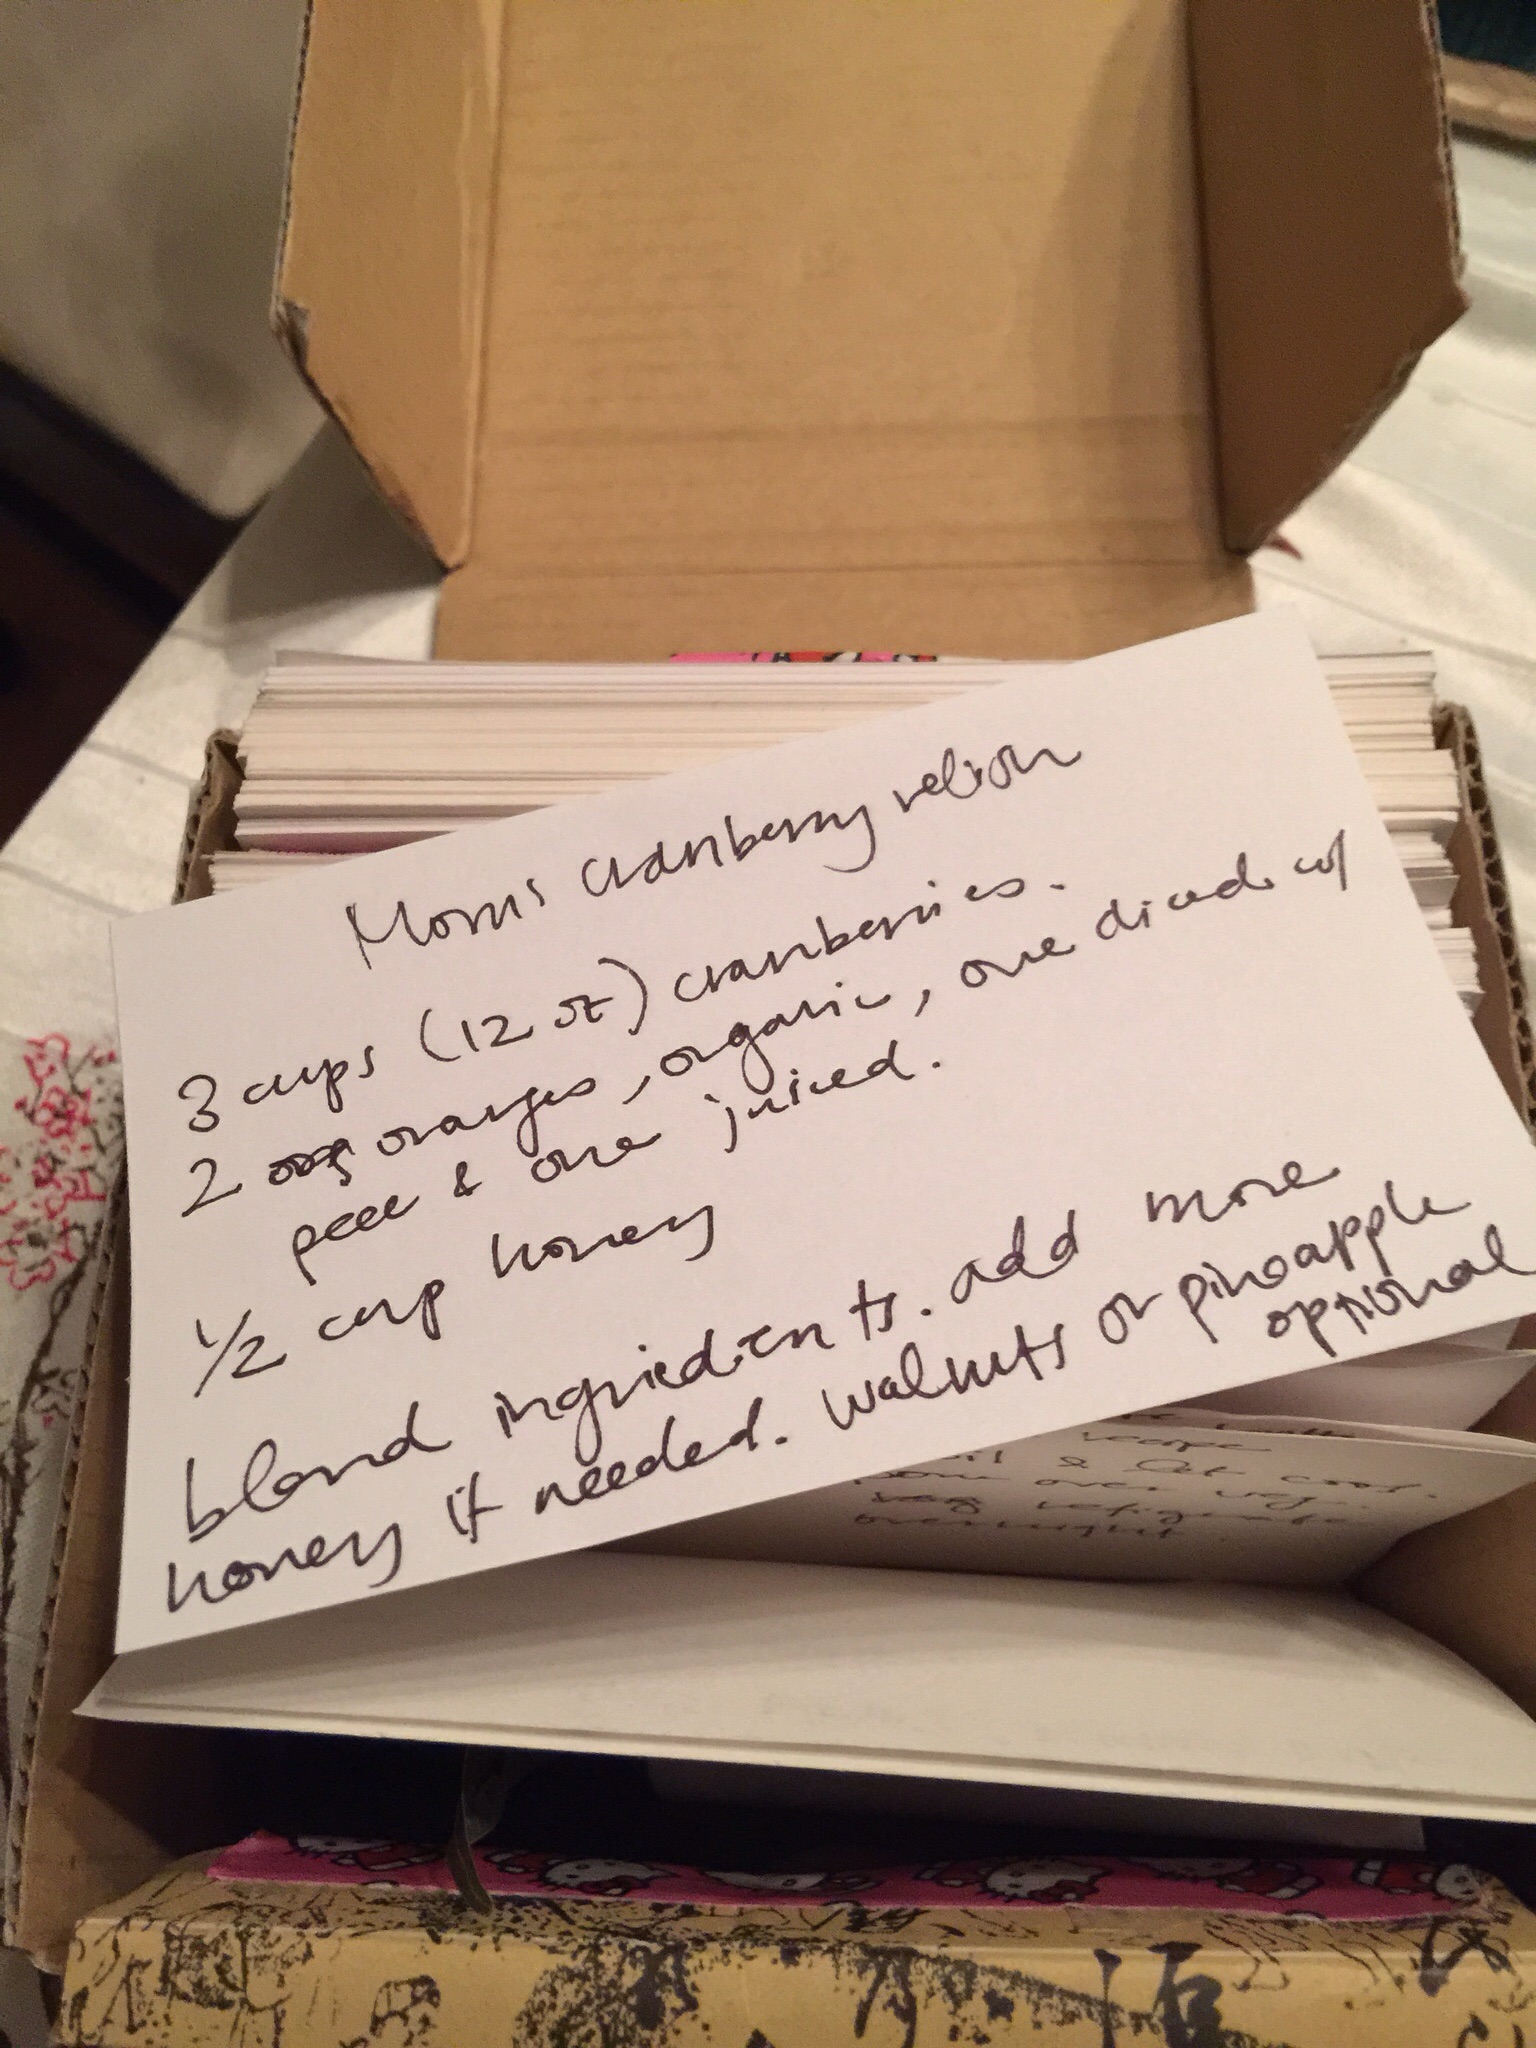 Mom's cranberry relish
3 cups (12 oz) cranberries.
2 oranges, organic, one diced w/
peel & one juiced.
1/2 cup honey
blend ingredients. add more
honey if needed. walnuts or pineapple
optional
recipe
& let cool.
over
refrigerate
overnight.